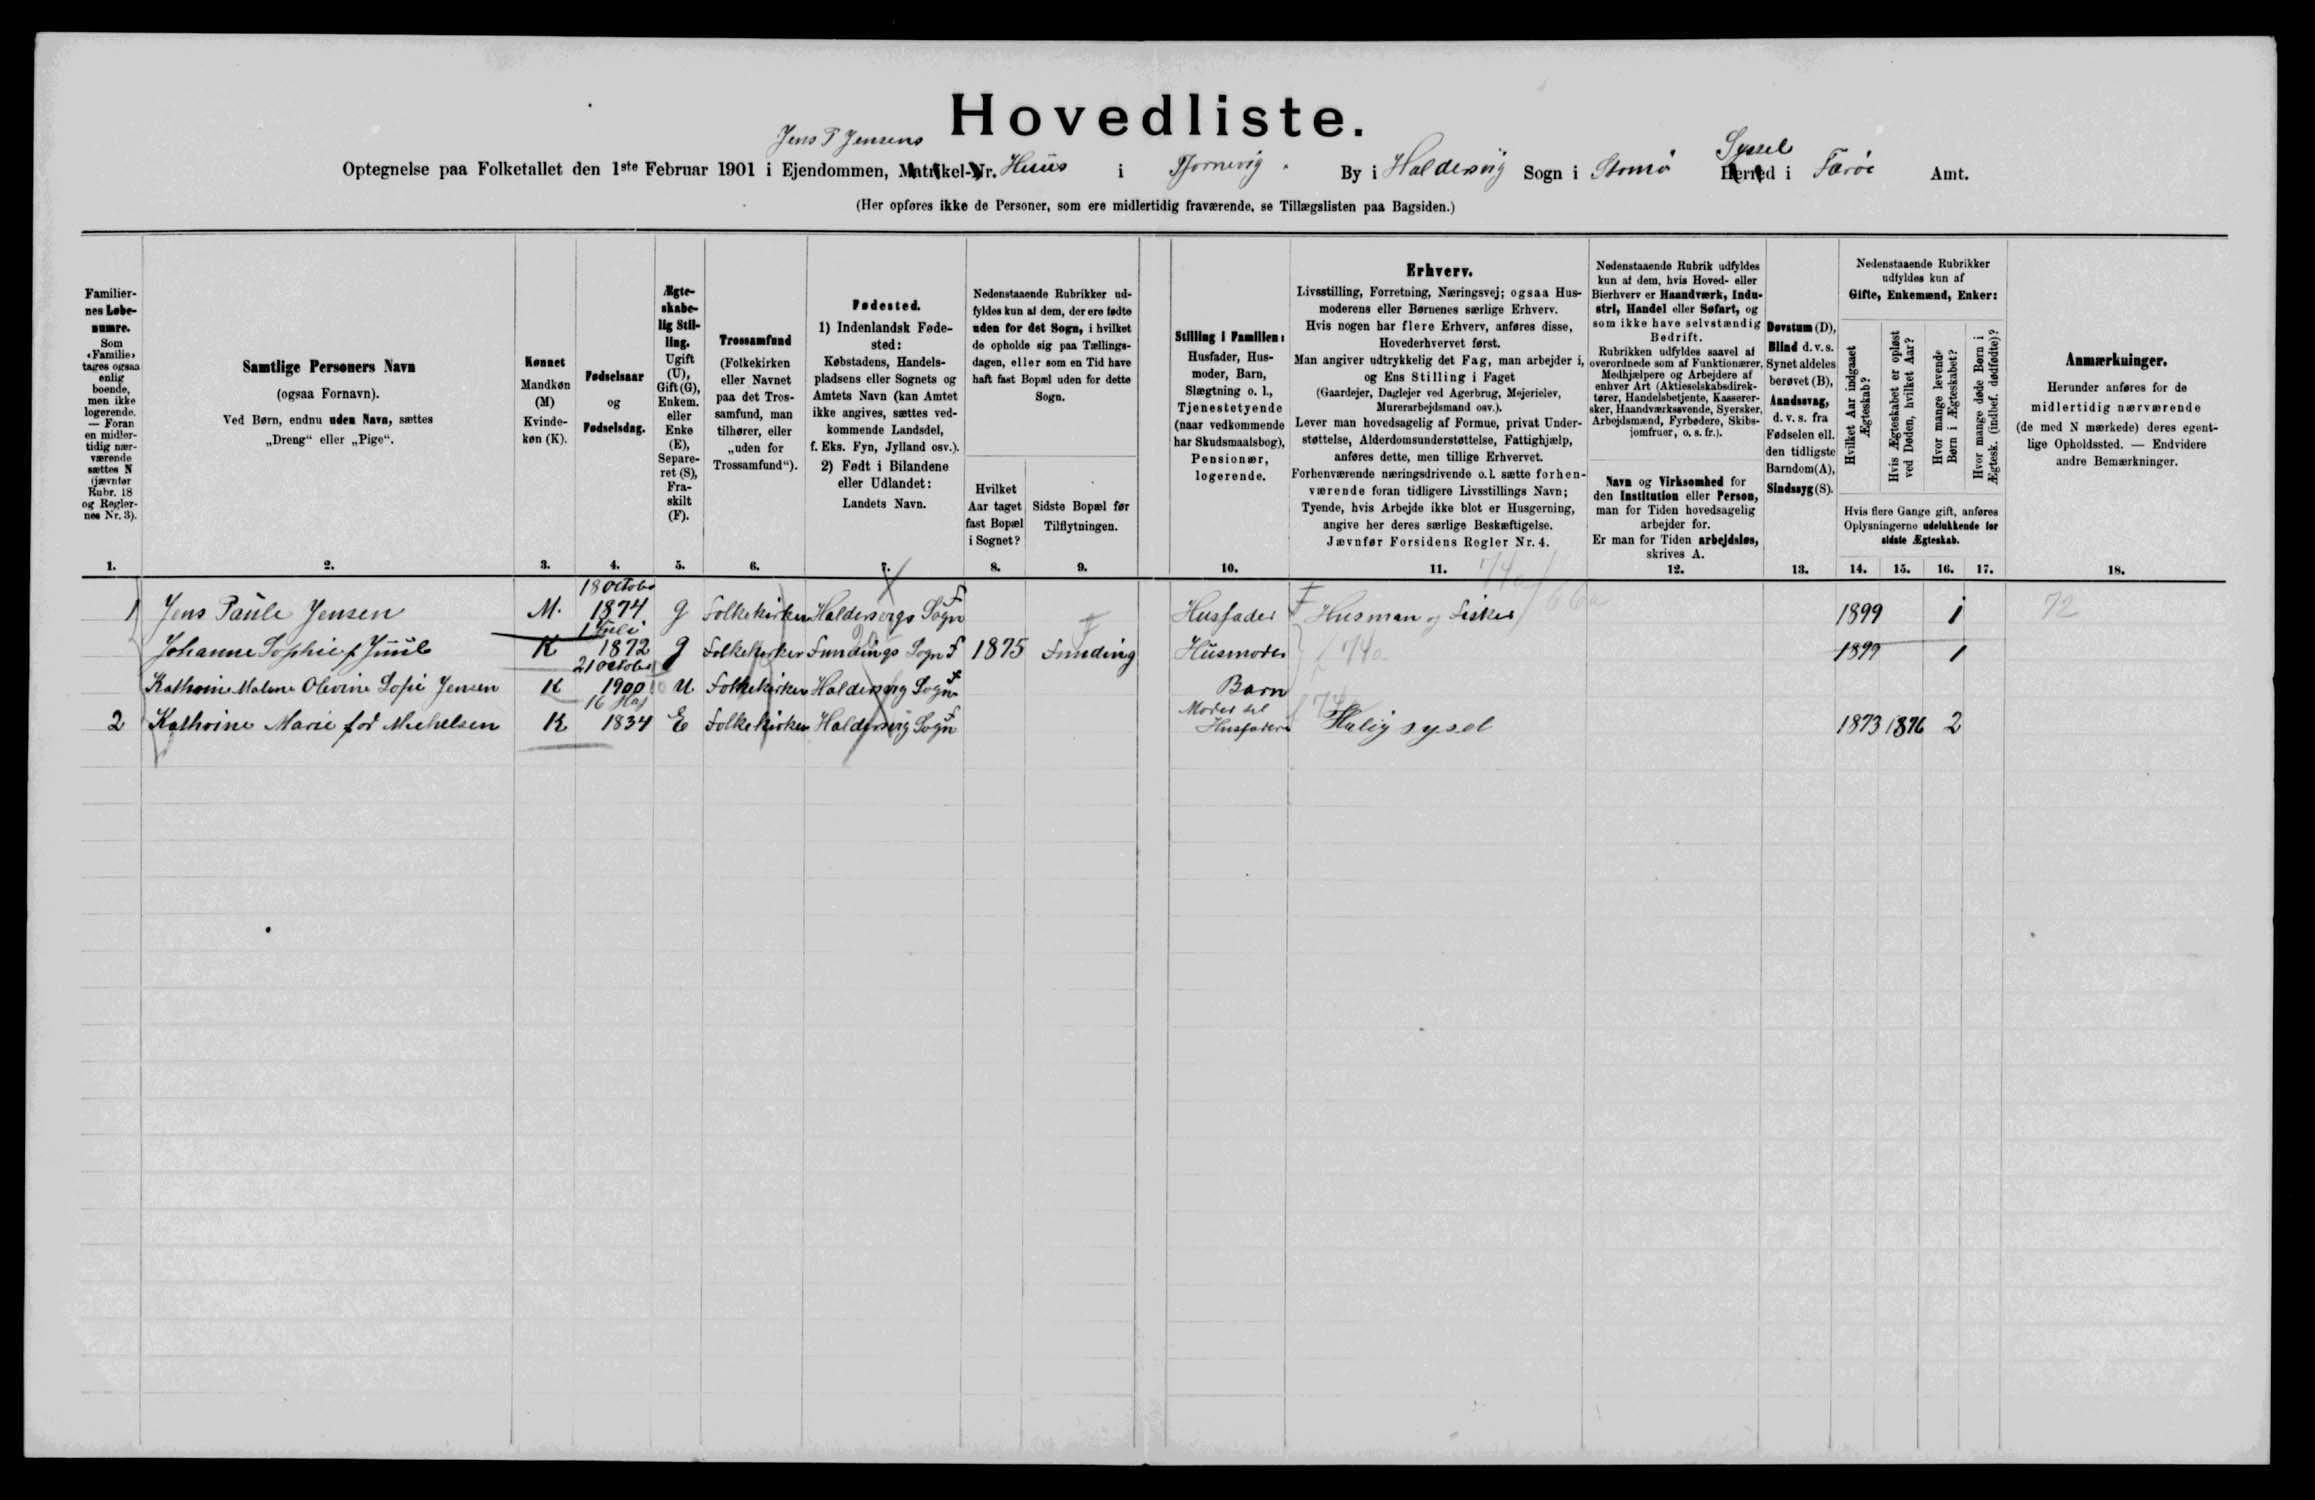 Hovedliste.
Jens P Jensens
Optegnelse paa Folketallet den 1ste Februar 1901 i Ejendommen, Matrikel-Nr. Huus i Tjornevig By i Haldersvig Sogn i Strømø Syssel Herred i Færøe Amt.
(Her opføres ikke de Personer, som ere midlertidig fraværende, se Tillægslisten paa Bagsiden.)
Familiernes Løbenumre.
Som «Familie» tages ogsaa enlig boende, men ikke logerende. — Foran en midlertidig nærværende sættes N (jævnfør Rubr. 18 og Reglernes Nr. 3).
Samtlige Personers Navn
(ogsaa Fornavn).
Ved Børn, endnu uden Navn, sættes
„Dreng“ eller „Pige“.
Kønnet
Mandkøn (M)
Kvindekøn (K).
Fødselsaar
og
Fødselsdag.
Ægteskabelig Stilling.
Ugift (U), Gift (G), Enkem. eller Enke (E), Separeret (S), Fraskilt (F).
Trossamfund
(Folkekirken eller Navnet paa det Trossamfund, man tilhører, eller „uden for Trossamfund“).
Fødested.
1) Indenlandsk Fødested:
Købstadens, Handelspladsens eller Sognets og Amtets Navn (kan Amtet ikke angives, sættes vedkommende Landsdel, f. Eks. Fyn, Jylland osv.).
2) Født i Bilandene eller Udlandet:
Landets Navn.
Nedenstaaende Rubrikker udfyldes kun af dem, der ere fødte uden for det Sogn, i hvilket de opholde sig paa Tællingsdagen, eller som en Tid have haft fast Bopæl uden for dette Sogn.
Hvilket Aar taget fast Bopæl i Sognet?
Sidste Bopæl før Tilflytningen.
Stilling i Familien:
Husfader, Husmoder, Barn, Slægtning o. l., Tjenestetyende (naar vedkommende har Skudsmaalsbog), Pensionær, logerende.
Erhverv.
Livsstilling, Forretning, Næringsvej; ogsaa Husmoderens eller Børnenes særlige Erhverv.
Hvis nogen har flere Erhverv, anføres disse, Hovederhvervet først.
Man angiver udtrykkelig det Fag, man arbejder i, og Ens Stilling i Faget
(Gaardejer, Daglejer ved Agerbrug, Mejerielev, Murerarbejdsmand osv.).
Lever man hovedsagelig af Formue, privat Understøttelse, Alderdomsunderstøttelse, Fattighjælp, anføres dette, men tillige Erhvervet.
Forhenværende næringsdrivende o. l. sætte forhenværende foran tidligere Livsstillings Navn;
Tyende, hvis Arbejde ikke blot er Husgerning, angive her deres særlige Beskæftigelse.
Jævnfør Forsidens Regler Nr. 4.
Nedenstaaende Rubrik udfyldes kun af dem, hvis Hoved- eller Bierhverv er Haandværk, Industri, Handel eller Søfart, og som ikke have selvstændig Bedrift.
Rubrikken udfyldes saavel af overordnede som af Funktionærer, Medhjælpere og Arbejdere af enhver Art (Aktieselskabsdirektører, Handelsbetjente, Kasserersker, Haandværkssvende, Syersker, Arbejdsmænd, Fyrbødere, Skibsjomfruer, o. s. fr.).
Navn og Virksomhed for den Institution eller Person, man for Tiden hovedsagelig arbejder for.
Er man for Tiden arbejdsløs, skrives A.
Døvstum (D),
Blind d. v. s. Synet aldeles berøvet (B),
Aandssvag, d. v. s. fra Fødselen ell. den tidligste Barndom (A),
Sindssyg (S).
Nedenstaaende Rubrikker udfyldes kun af
Gifte, Enkemænd, Enker:
Hvilket Aar indgaaet Ægteskab?
Hvis Ægteskabet er opløst ved Døden, hvilket Aar?
Hvor mange levende Børn i Ægteskabet?
Hvor mange døde Børn i Ægtesk. (indbef. dødfødte)?
Hvis flere Gange gift, anføres Oplysningerne udelukkende for sidste Ægteskab.
Anmærkninger.
Herunder anføres for de midlertidig nærværende (de med N mærkede) deres egentlige Opholdssted. — Endvidere andre Bemærkninger.
1. 2. 3. 4. 5. 6. 7. 8. 9. 10. 11. 12. 13. 14. 15. 16. 17. 18.
1 Jens Paule Jensen M. 18 October 1874 G Folkekirken Haldersvigs Sogn F Husfader Husman og Fisker 74a 66a 1899 1 72
Johanne Sophie f Juul K 1 Juli 1872 G Folkekirken Fundings Sogn F 1875 Funding Husmoder 74a 1899 1
Kathrine Malene Olevine Sofie Jensen K 21 October 1900 U Folkekirken Haldersvig Sogn F Barn
2 Kathrine Marie fød Michelsen K 16 Maj 1834 E Folkekirken Haldersvig Sogn F Moder til Husfaderen Huslig sysel 1873 1876 2